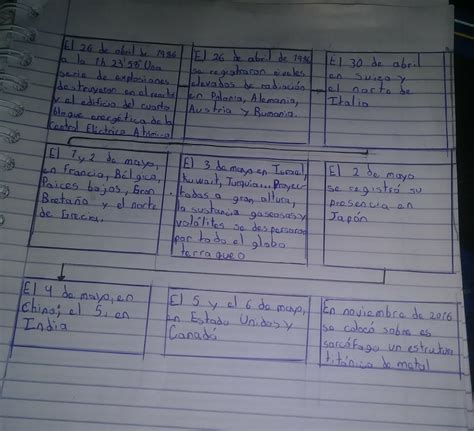 El 26 de abril de 1986
a la 1h 23' 58" Una
serie de explosiones
destruyeron en el reacto
y el edificio del cuarto
bloque energética de la
Central Eléctrica Atómica
El 26 de abril de 1986
se registraron niveles
elevados de radiación
en Polonia, Alemania,
Austria y Rumania.
El 30 de abril
en suiza y
el norte de
Italia
El 1 y 2 de mayo,
en Francia, Bélgica,
Paices bajos, Gran
Bretaña y el norte
de Grecia.
El 3 de mayo en Isrrael,
Kuwait, Turquía... Proyec
tadas a gran altura,
la sustancia gaseosas y
volátiles se despersaron
por todo el globo
terraqueo
El 2 de mayo
se registró su
presencia en
Japón
El 4 de mayo, en
China; el 5, en
India
El 5 y el 6 de mayo,
en Estado Unidos y
Canadá
En noviembre de 2016
se colocó sobre es
sarcófago un estructura
titánica de metal